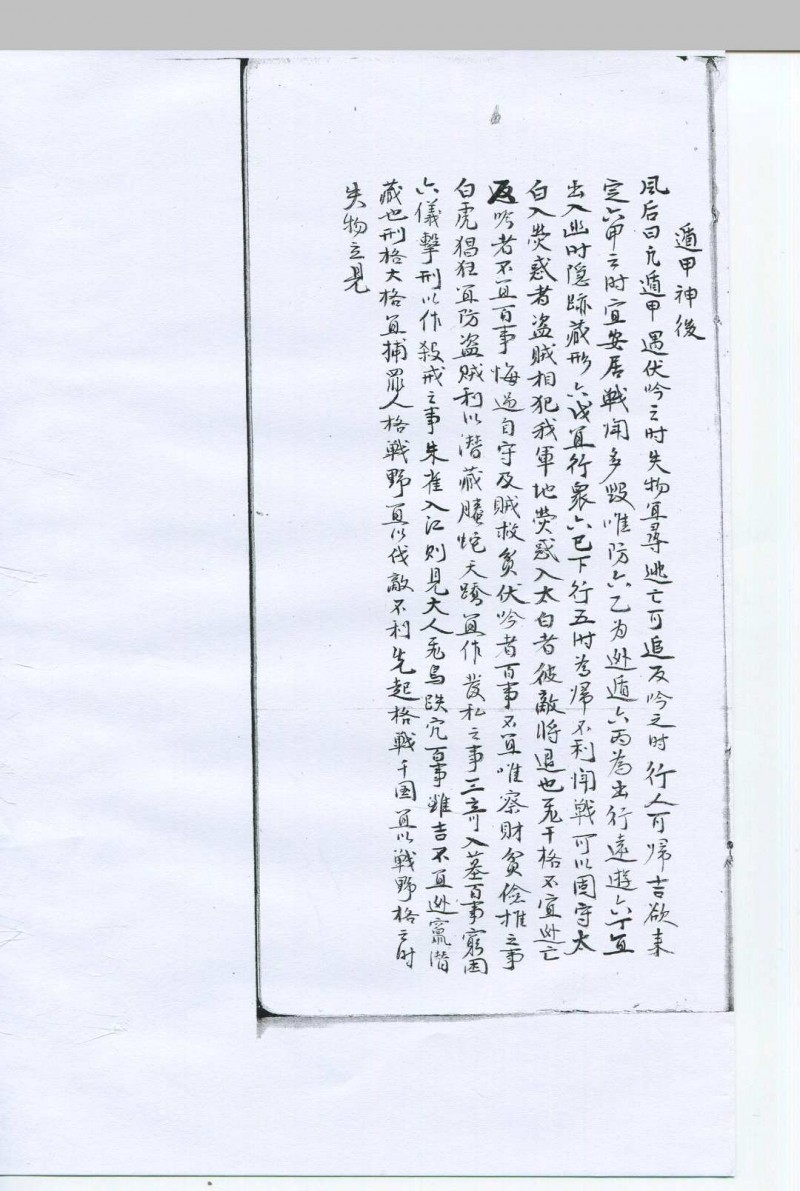 遁甲神後
風后曰凡遁甲遇伏吟之時失物宜尋逃亡可追反吟之时行人可歸吉欲来
定六甲之时宜安居戦闘多毀唯防六乙为迯遁六丙為出行遠遊六丁宜
出入迯时隐跡藏形六戊宜行衆六已下行五时為歸不利闘戦可以固守太
白入熒惑者盗賊相犯我軍地熒惑入太白者彼敵將退也飛干格不宜迯亡
反吟者不宜百事悔過自守及賊救貧伏吟者百事不宜唯察財貧儉推之事
白虎猖狂宜防盗賊利以潜藏螣蛇夭蹻宜作發私之事三竒入墓百事窮困
六儀擊刑以作殺戒之事朱雀入江则見大人飛鸟跌穴百事雖吉不宜迯竄潜
藏也刑格大格宜捕罪人格戦野宜以伐敵不利先起格戦千国宜以戦野格之时
失物立見